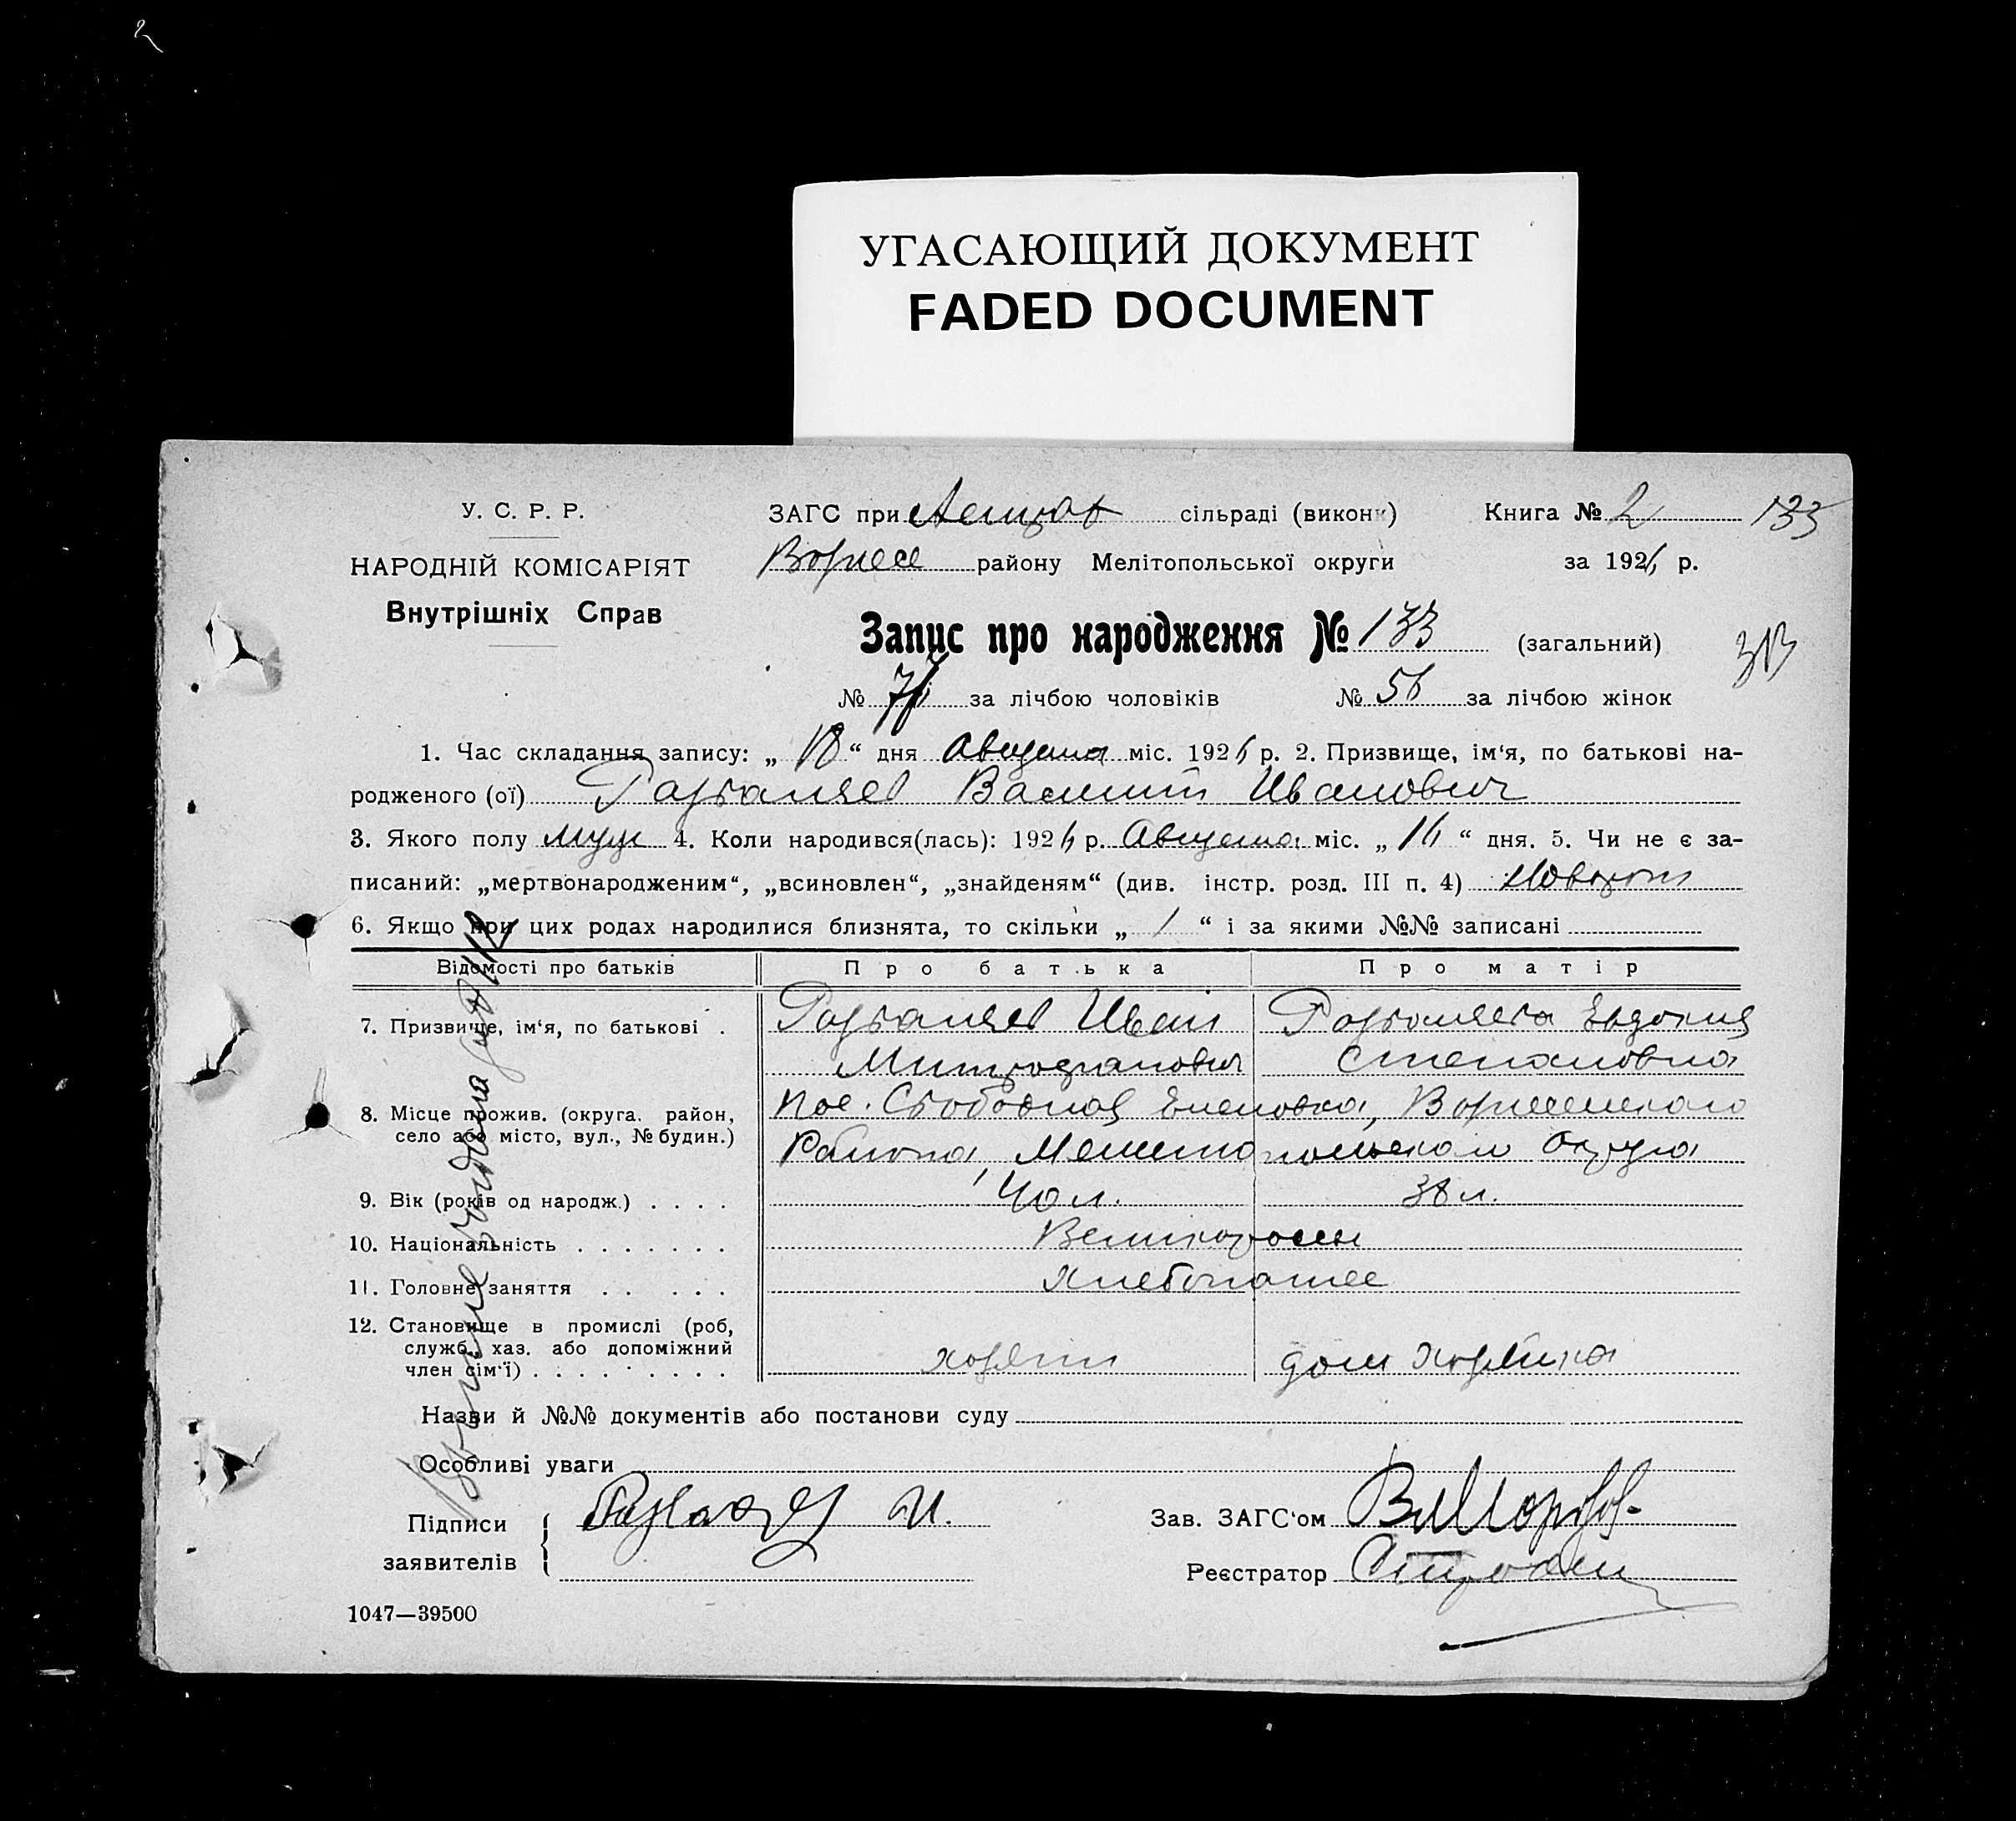 УГАСАЮЩИЙ ДОКУМЕНТ
FADED DOCUMENT
У. С. Р. Р.
НАРОДНІЙ КОМІСАРІЯТ
Внутрішніх Справ
ЗАГС при сільраді (викон) Книга № 2 133
району Мелітопольської округи за 1926 р.
Запис про народження № 133 (загальний)
313
№ за лічбою чоловіків № 56 за лічбою жінок
1. Час складання запису: „ 18 “ дня Августа міс. 1926 р. 2. Призвище, ім‘я, по батькові на-
родженого (ої) Василий Иванович
3. Якого полу муж 4. Коли народився(лась): 1926 р. Августа міс. „ 16 “ дня. 5. Чи не є за-
писаний: „мертвонародженим“, „всиновлен“, „знайденям“ (див. інстр. розд. III п. 4)
6. Якщо при цих родах народилися близнята, то скільки „ 1 “ і за якими №№ записані
Відомості про батьків Про батька Про матір
7. Призвище, ім‘я, по батькові . Иван Евдокия
Митрофанович Степановна
8. Місце прожив. (округа, район, пос. Свободная Еленовка,
село або місто, вул., № будин.) Района, Мелитопольскаго Округа
9. Вік (років од народж.) . . . . 40 л. 38 л.
10. Національність . . . . . . . Великороссы
11. Головне заняття . . . . . Хлебопашес
12. Становище в промислі (роб,
служб., хаз. або допоміжний
член сім‘ї) . . . . . . . . хозяин дом хозяйка
Назви й №№ документів або постанови суду
Особливі уваги
Підписи
заявителів И.
Зав. ЗАГС‘ом
Реєстратор
1047—39500